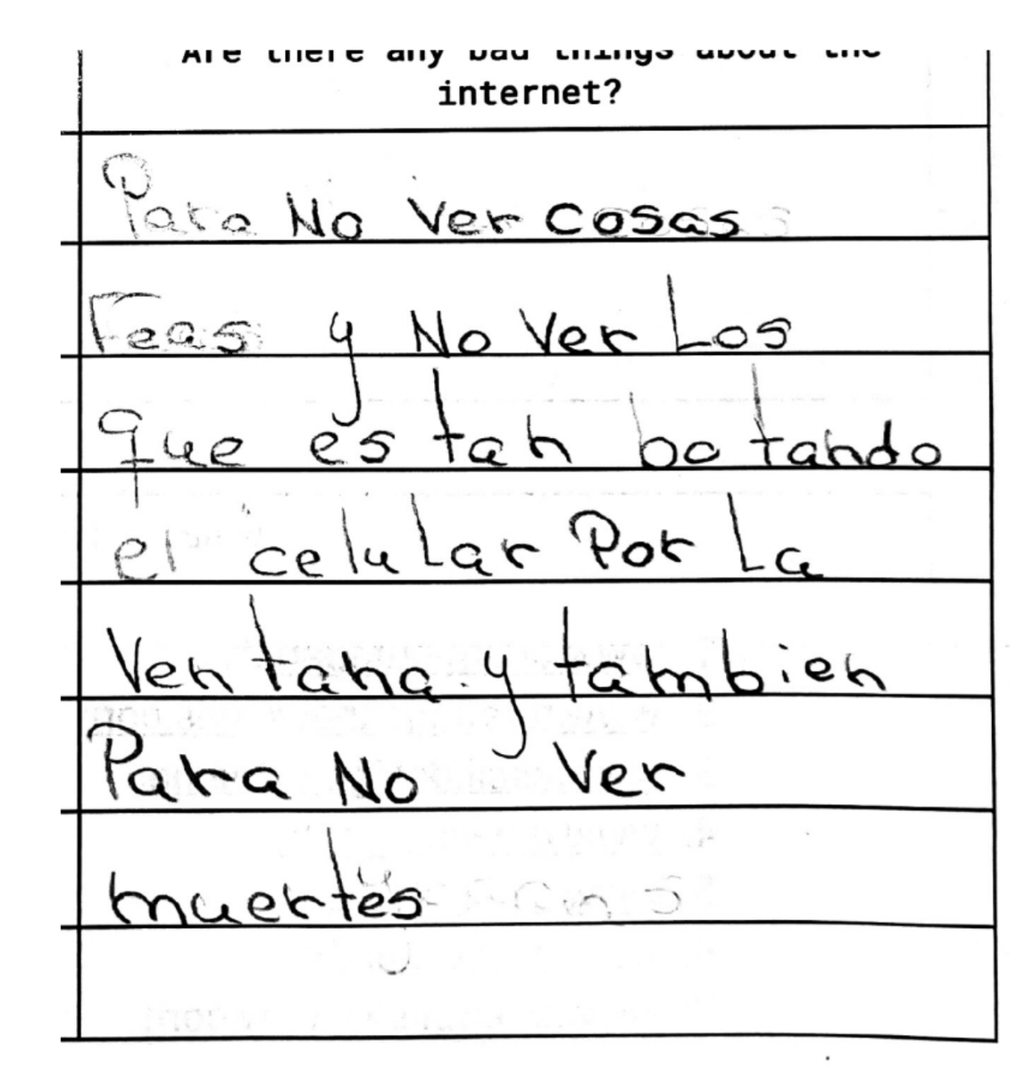 Are there any bad things about the
internet?
Para No Ver cosas
Feas y No Ver Los
que es tan bo tando
el celular Por La
Ven tana. y tambien
Para No Ver
muertes